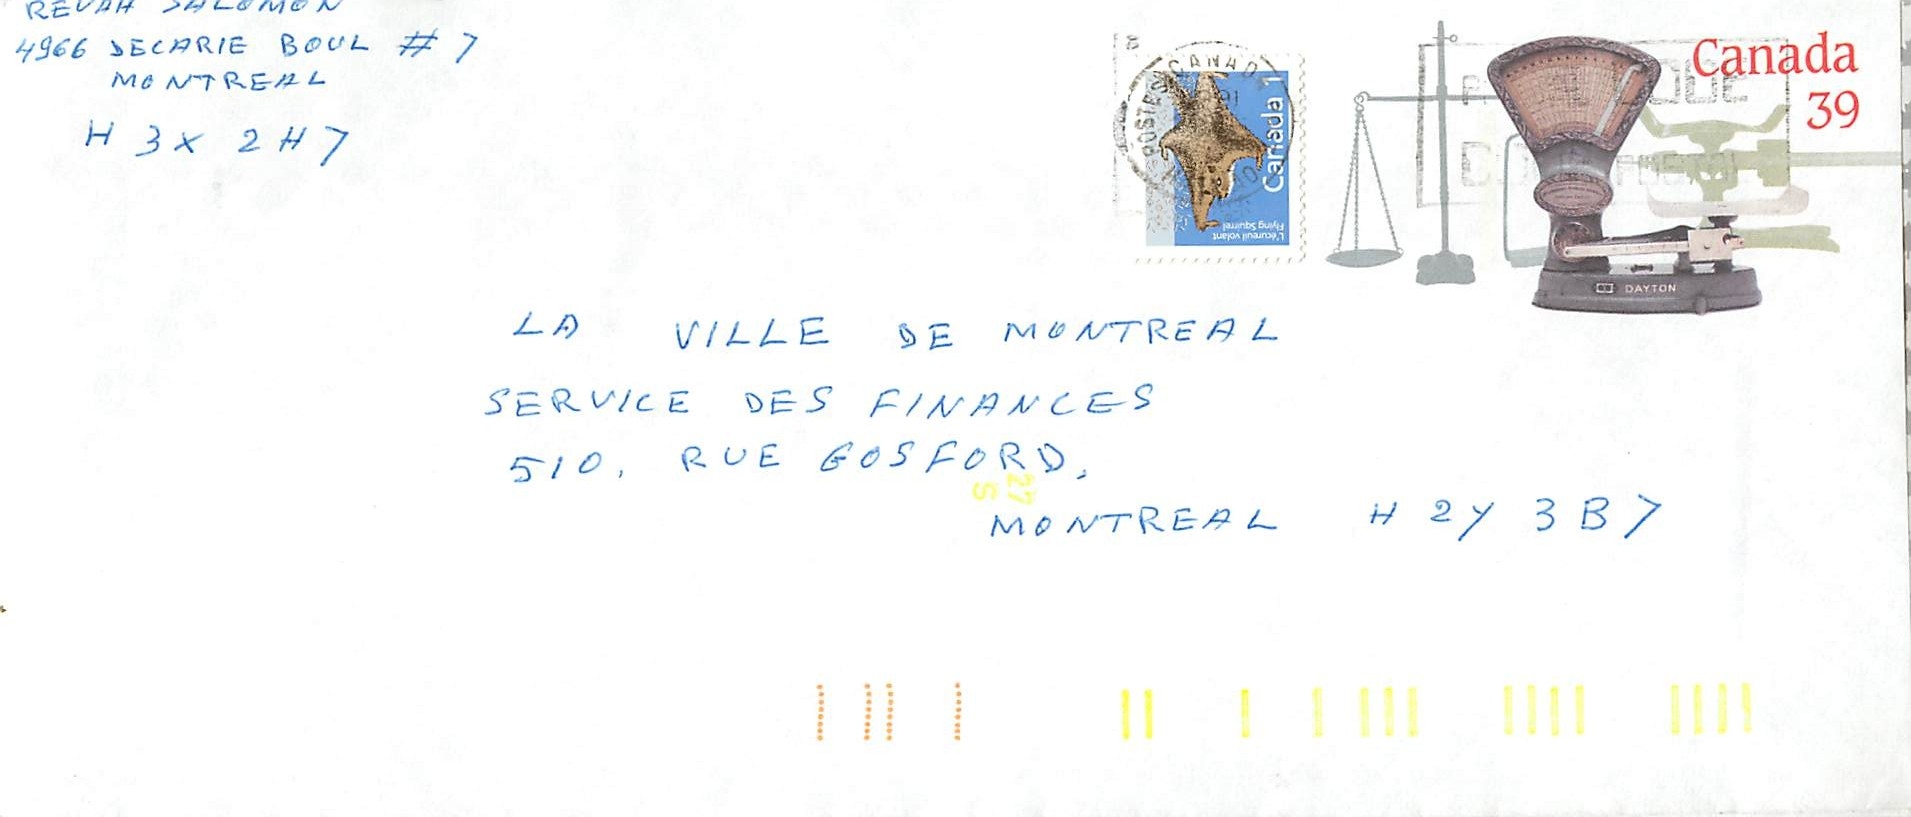 REVAH SALOMON
4966 DECARIE BOUL # 7
MONTREAL
H 3X 2H7
CANADA
91
Canada 1
L'écureuil volant
Flying Squirrel
Canada
39
DAYTON
LA VILLE DE MONTREAL
SERVICE DES FINANCES
510, RUE GOSFORD,
27
S
MONTREAL H 2Y 3B7